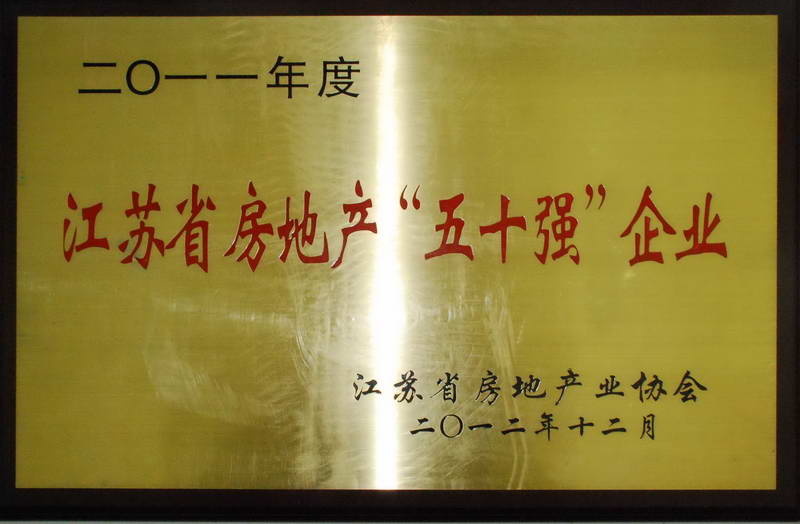 二〇一一年度
江苏省房地产“五十强”企业
江苏省房地产业协会
二〇一二年十二月